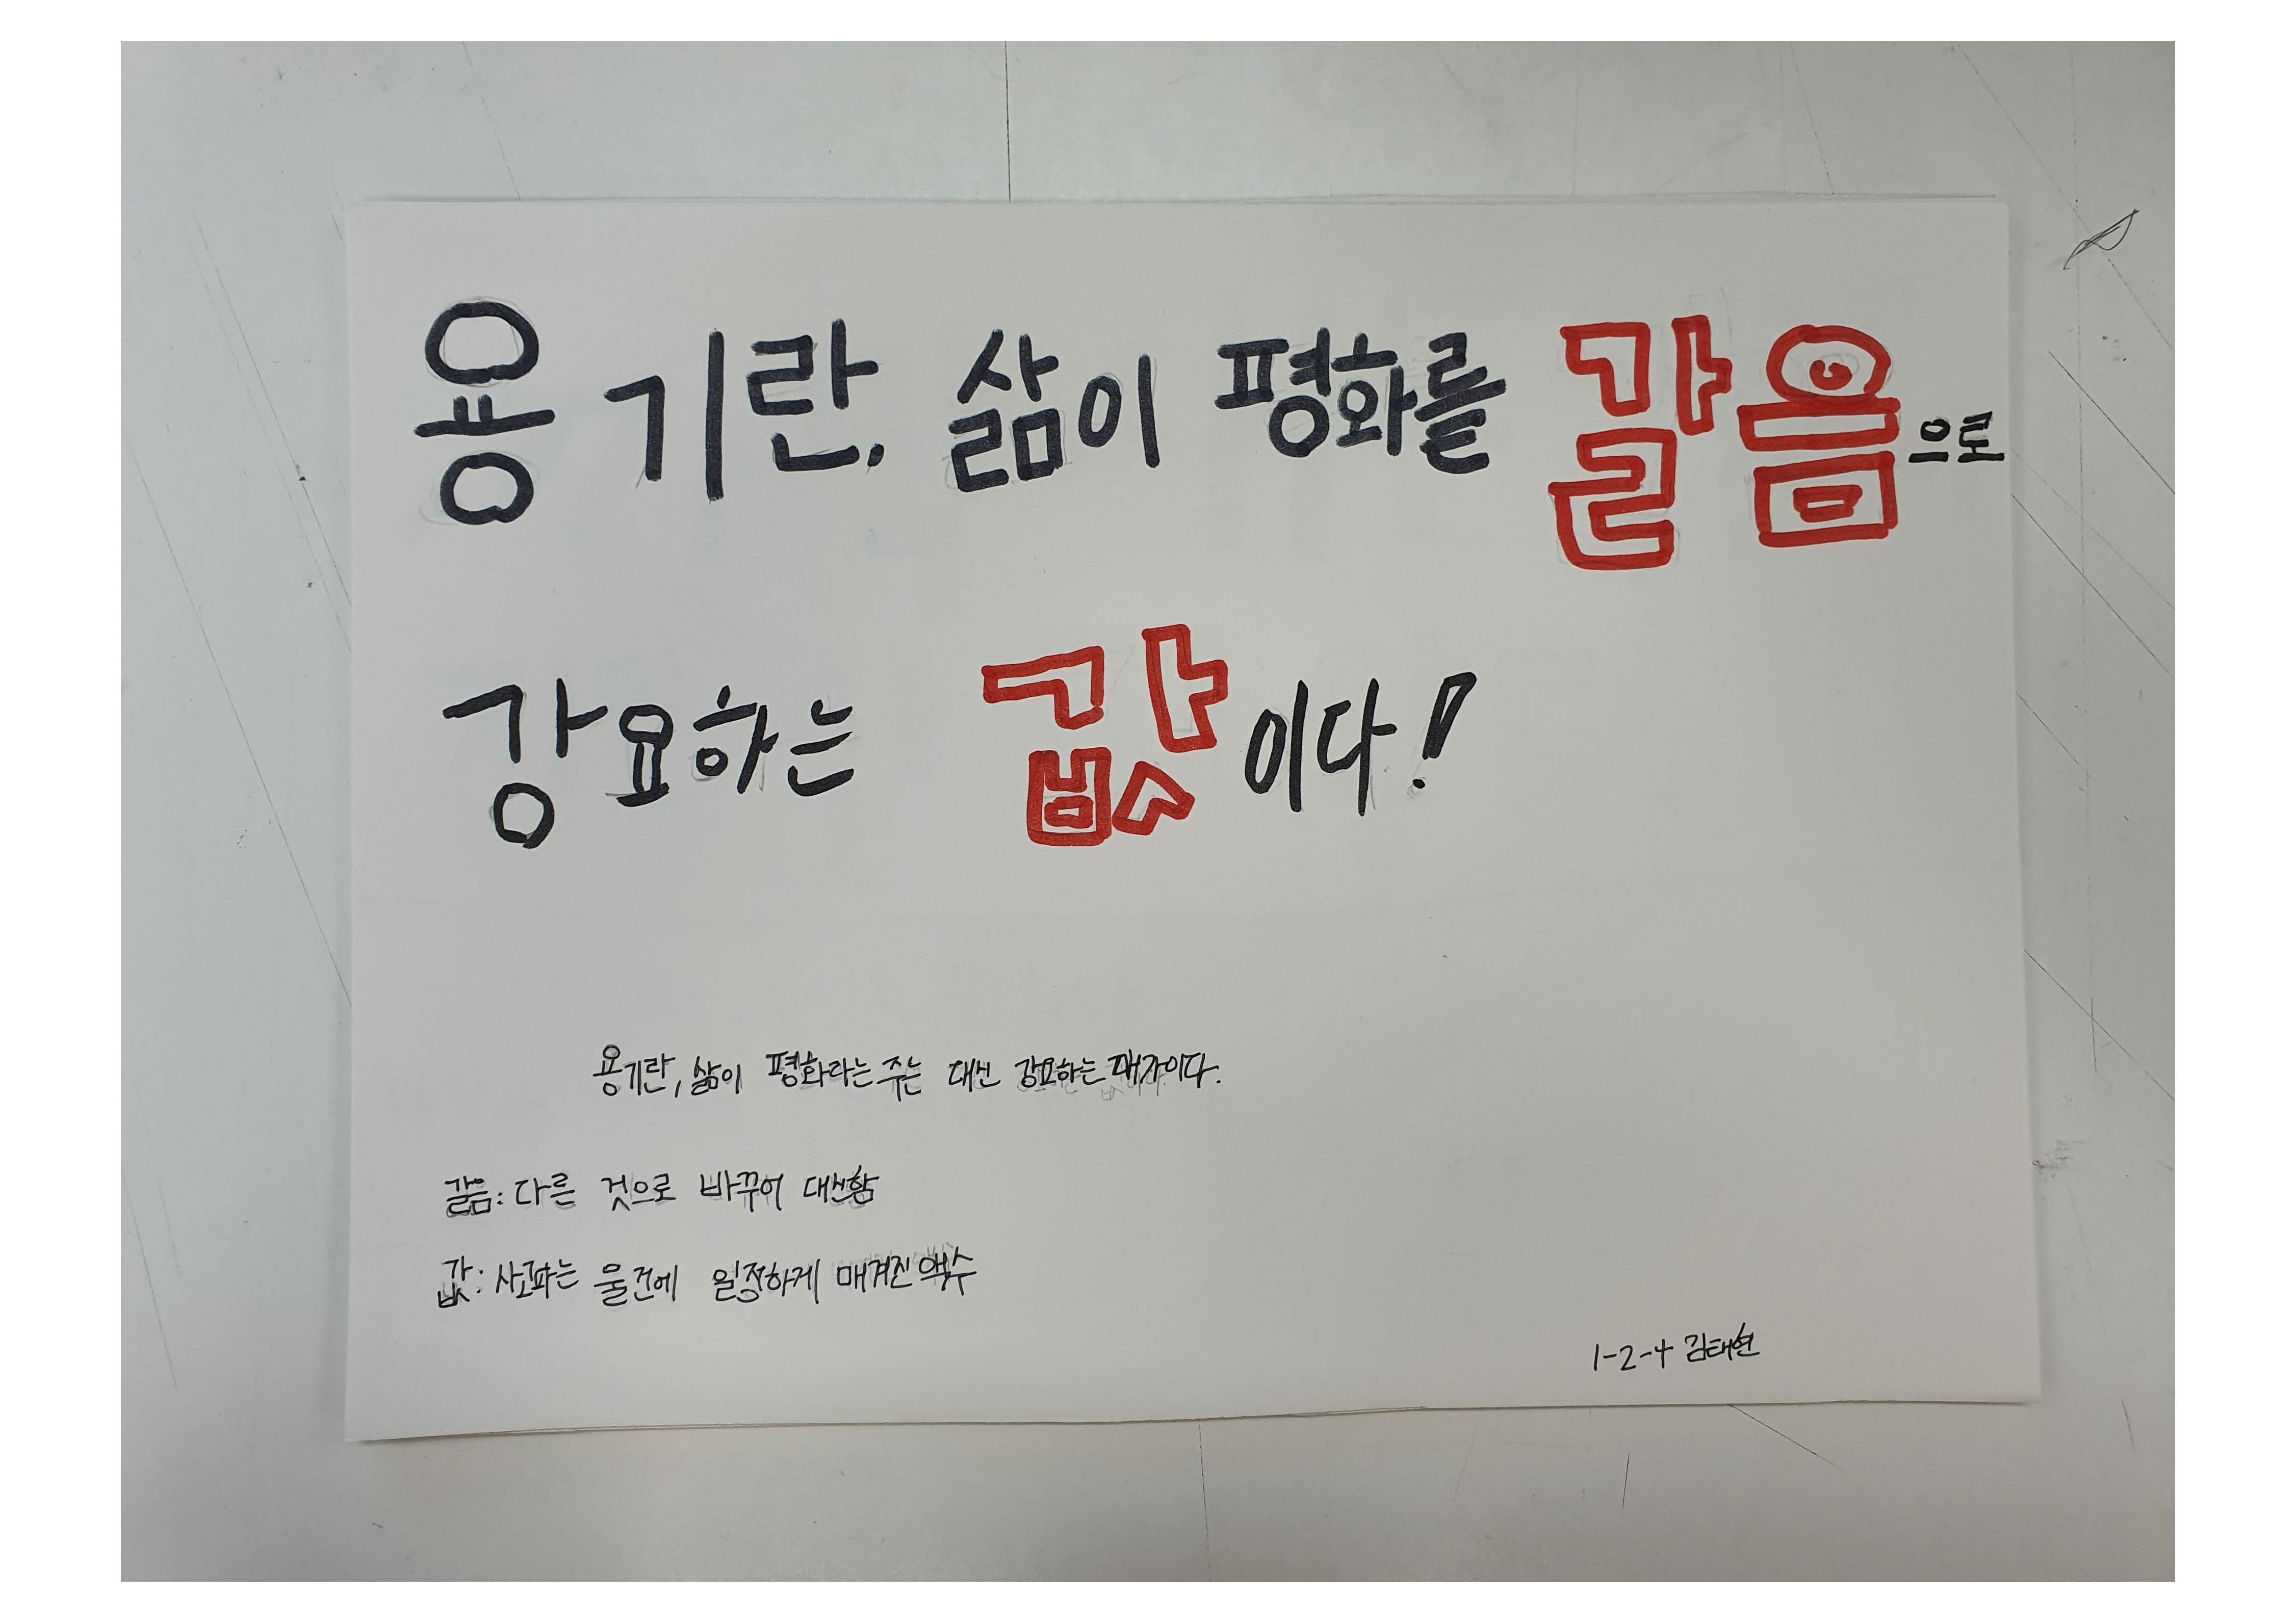 용기란, 삶이 평화를 갈음으로
강요하는 값이다!
용기란, 삶이 평화라는 주는 대신 강요하는 대가이다.
갈음: 다른 것으로 바꾸어 대신함
값: 사고파는 물건에 일정하게 매겨진 액수
1-2-4 김태현